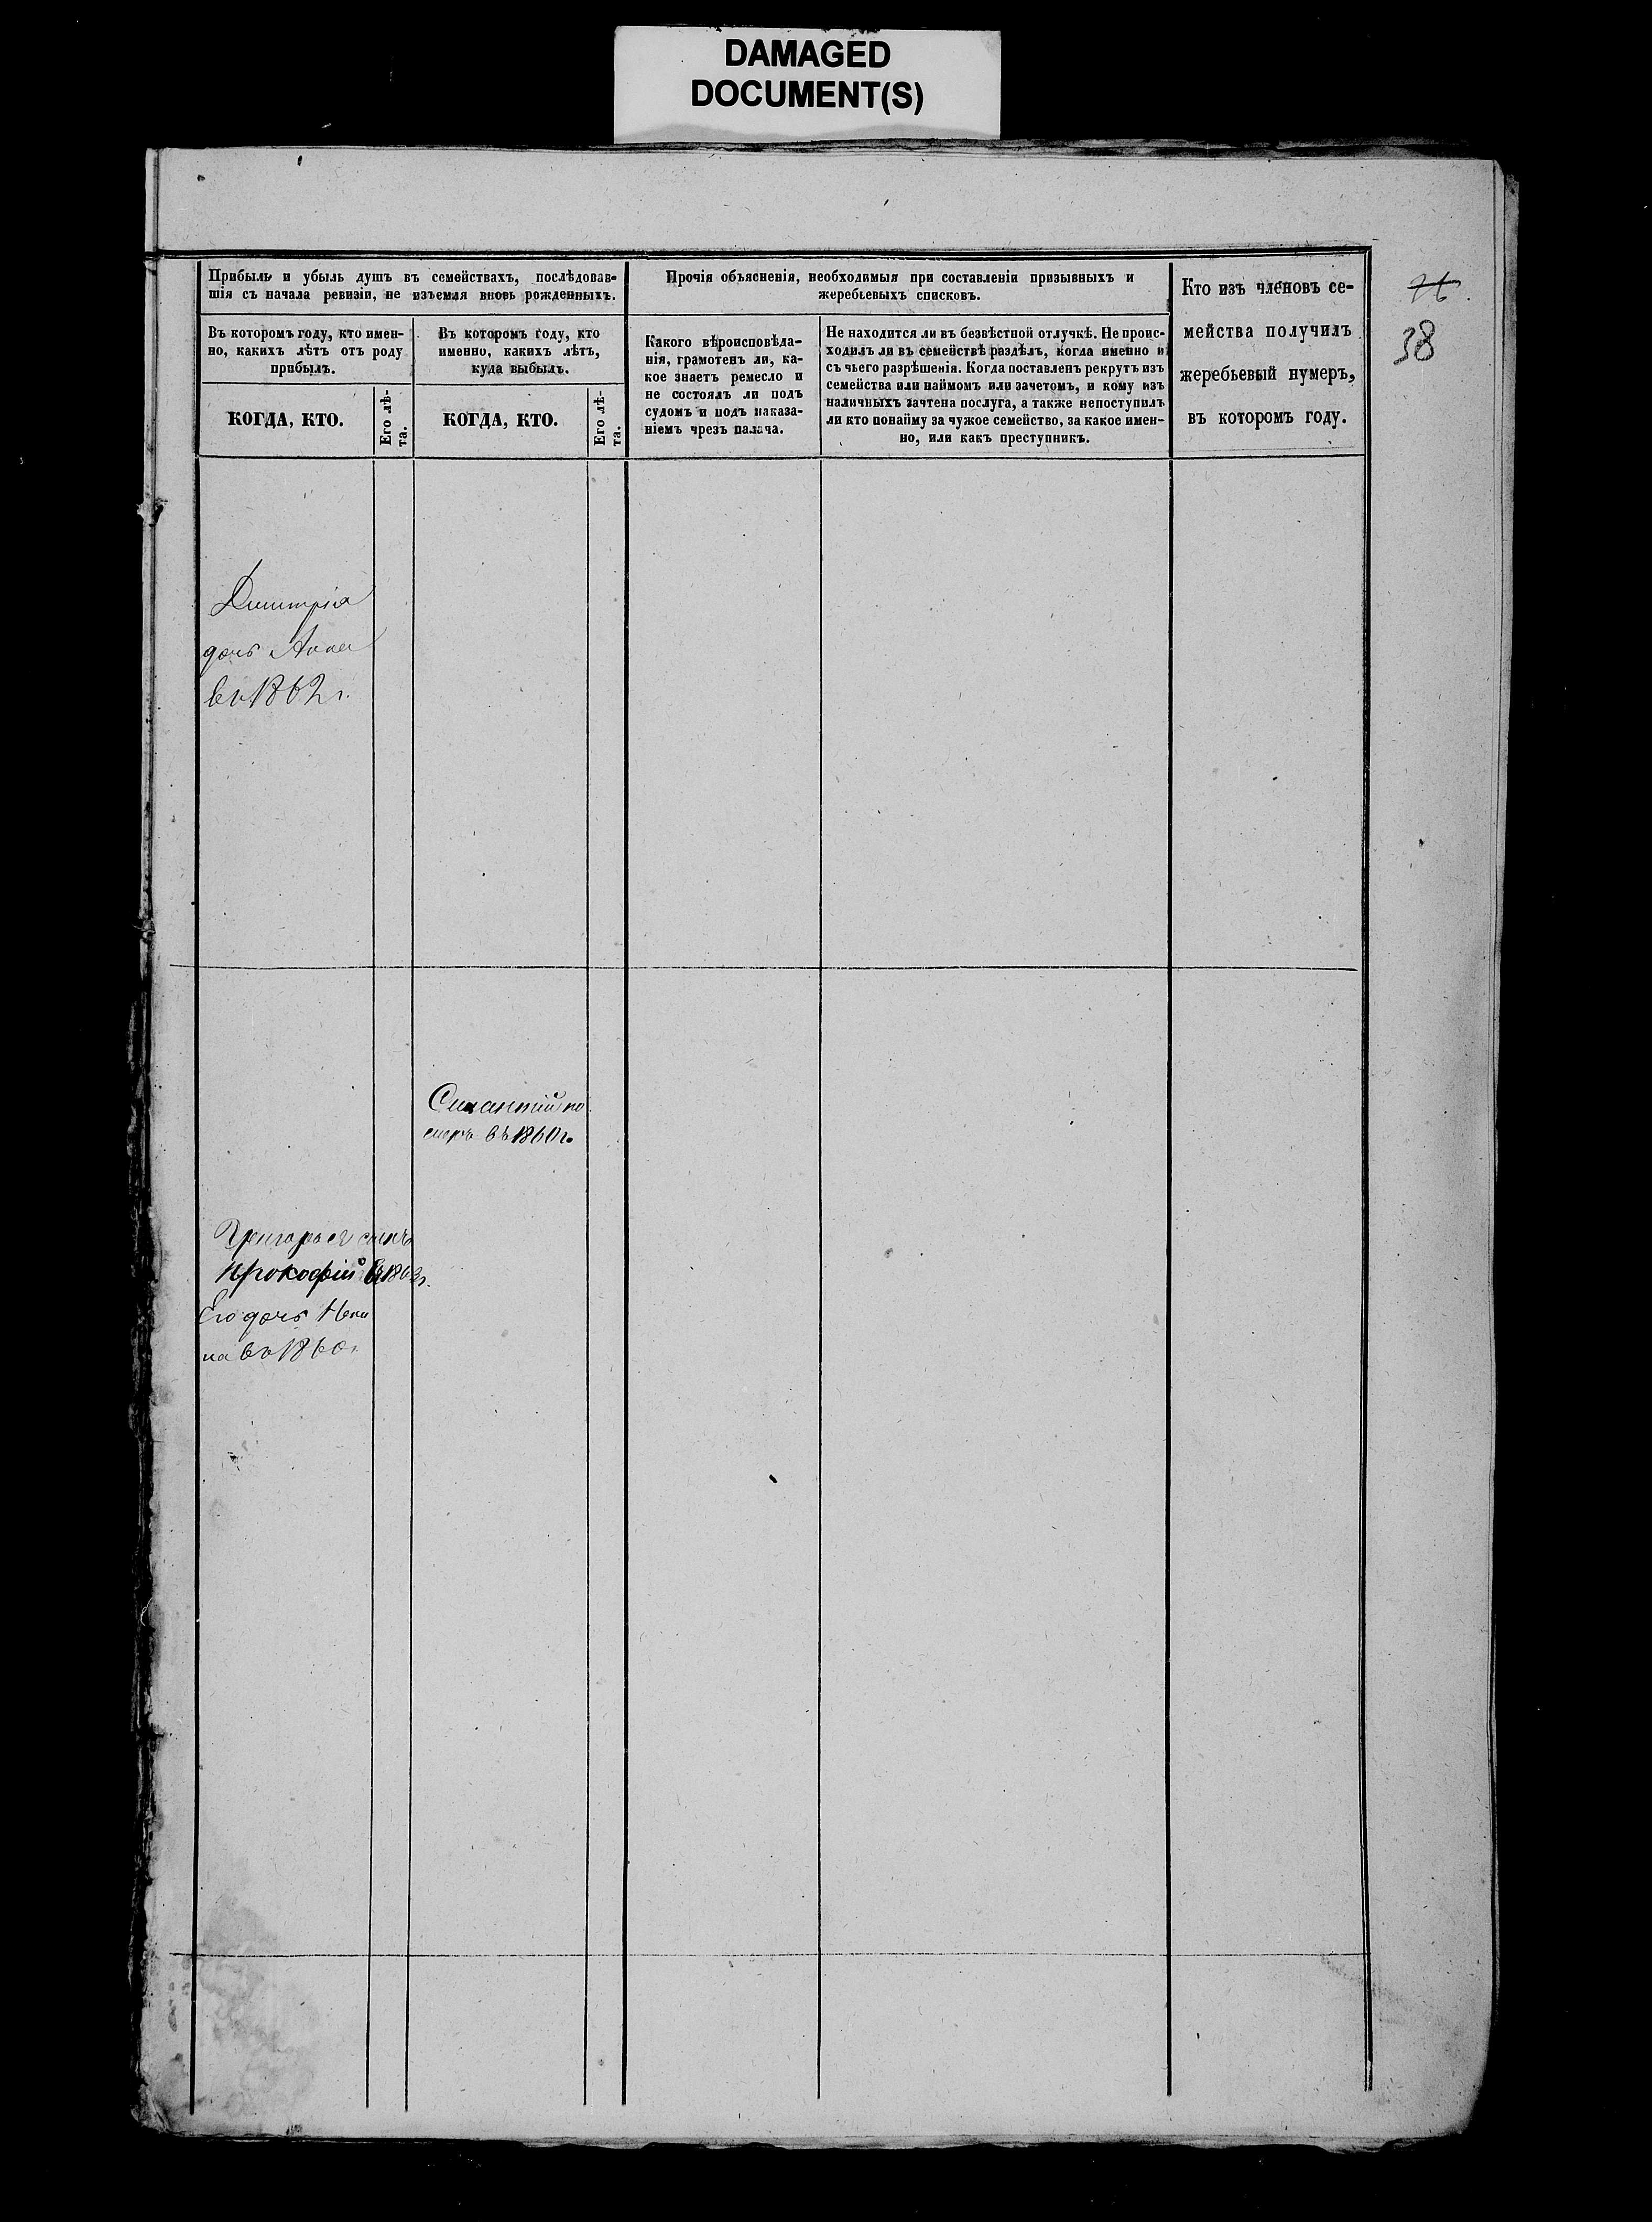 DAMAGED
DOCUMENT(S)
Прибыль и убыль душъ въ семействахъ, послѣдовав-
шія съ начала ревизіи, не изъемля вновь рожденныхъ.
Прочія объясненія, необходимыя при составленіи призывныхъ и
жеребьевыхъ списковъ.
Кто изъ членовъ се-
мейства получилъ
жеребьевый нумеръ,
въ которомъ году.
38
Въ которомъ году, кто имен-
но, какихъ лѣтъ отъ роду
прибылъ.
Въ которомъ году, кто
именно, какихъ лѣтъ,
куда выбылъ.
Какого вѣроисповѣда-
нія, грамотенъ ли, ка-
кое знаетъ ремесло и
не состоялъ ли подъ
судомъ и подъ наказа-
ніемъ чрезъ палача.
Не находится ли въ безвѣстной отлучкѣ. Не проис-
ходилъ ли въ семействѣ раздѣлъ, когда именно и
съ чьего разрѣшенія. Когда поставленъ рекрутъ изъ
семейства или наймомъ или зачетомъ, и кому изъ
наличныхъ зачтена послуга, а также непоступилъ
ли кто понайму за чужое семейство, за какое имен-
но, или какъ преступникъ.
КОГДА, КТО.
Его лѣ-
та.
КОГДА, КТО.
Его лѣ-
та.
Димитрія
дочь Анна
въ 1862 г.
по
меръ въ 1860 г.
Григорья сынъ
Прокофій въ 186 г.
Его дочь
на въ 1860 г